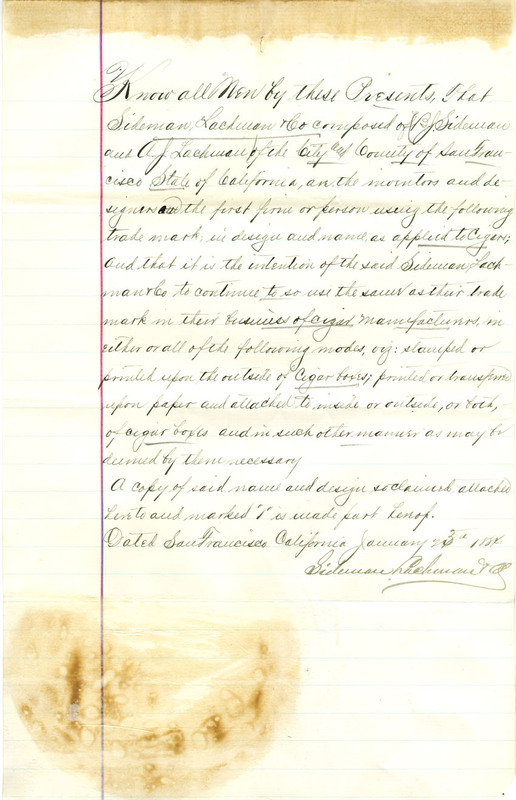 Know all Men by these Presents, That
Sideman, Lachman & Co composed of Sideman
and A J Lachman of the City and County of San Fran-
cisco State of California, are the inventors and de-
signers and the first firm or person using the following
trade mark in design and name as applied to Cigars;
and that it is the intention of the said Sideman Lach-
man & Co to continue to so use the same as their trade
mark in their business of cigar Manufacturers, in
either or all of the following modes, viz; stamped or
printed upon the outside of Cigar boxes; printed or transferred
upon paper and attached to inside or outside, or both,
of cigar boxes and in such other manner as may be
deemed by them necessary
A copy of said name and design so claimed attached
hereto and marked "1" is made part hereof.
Dated San Francisco California January
Sideman, Lachman & Co